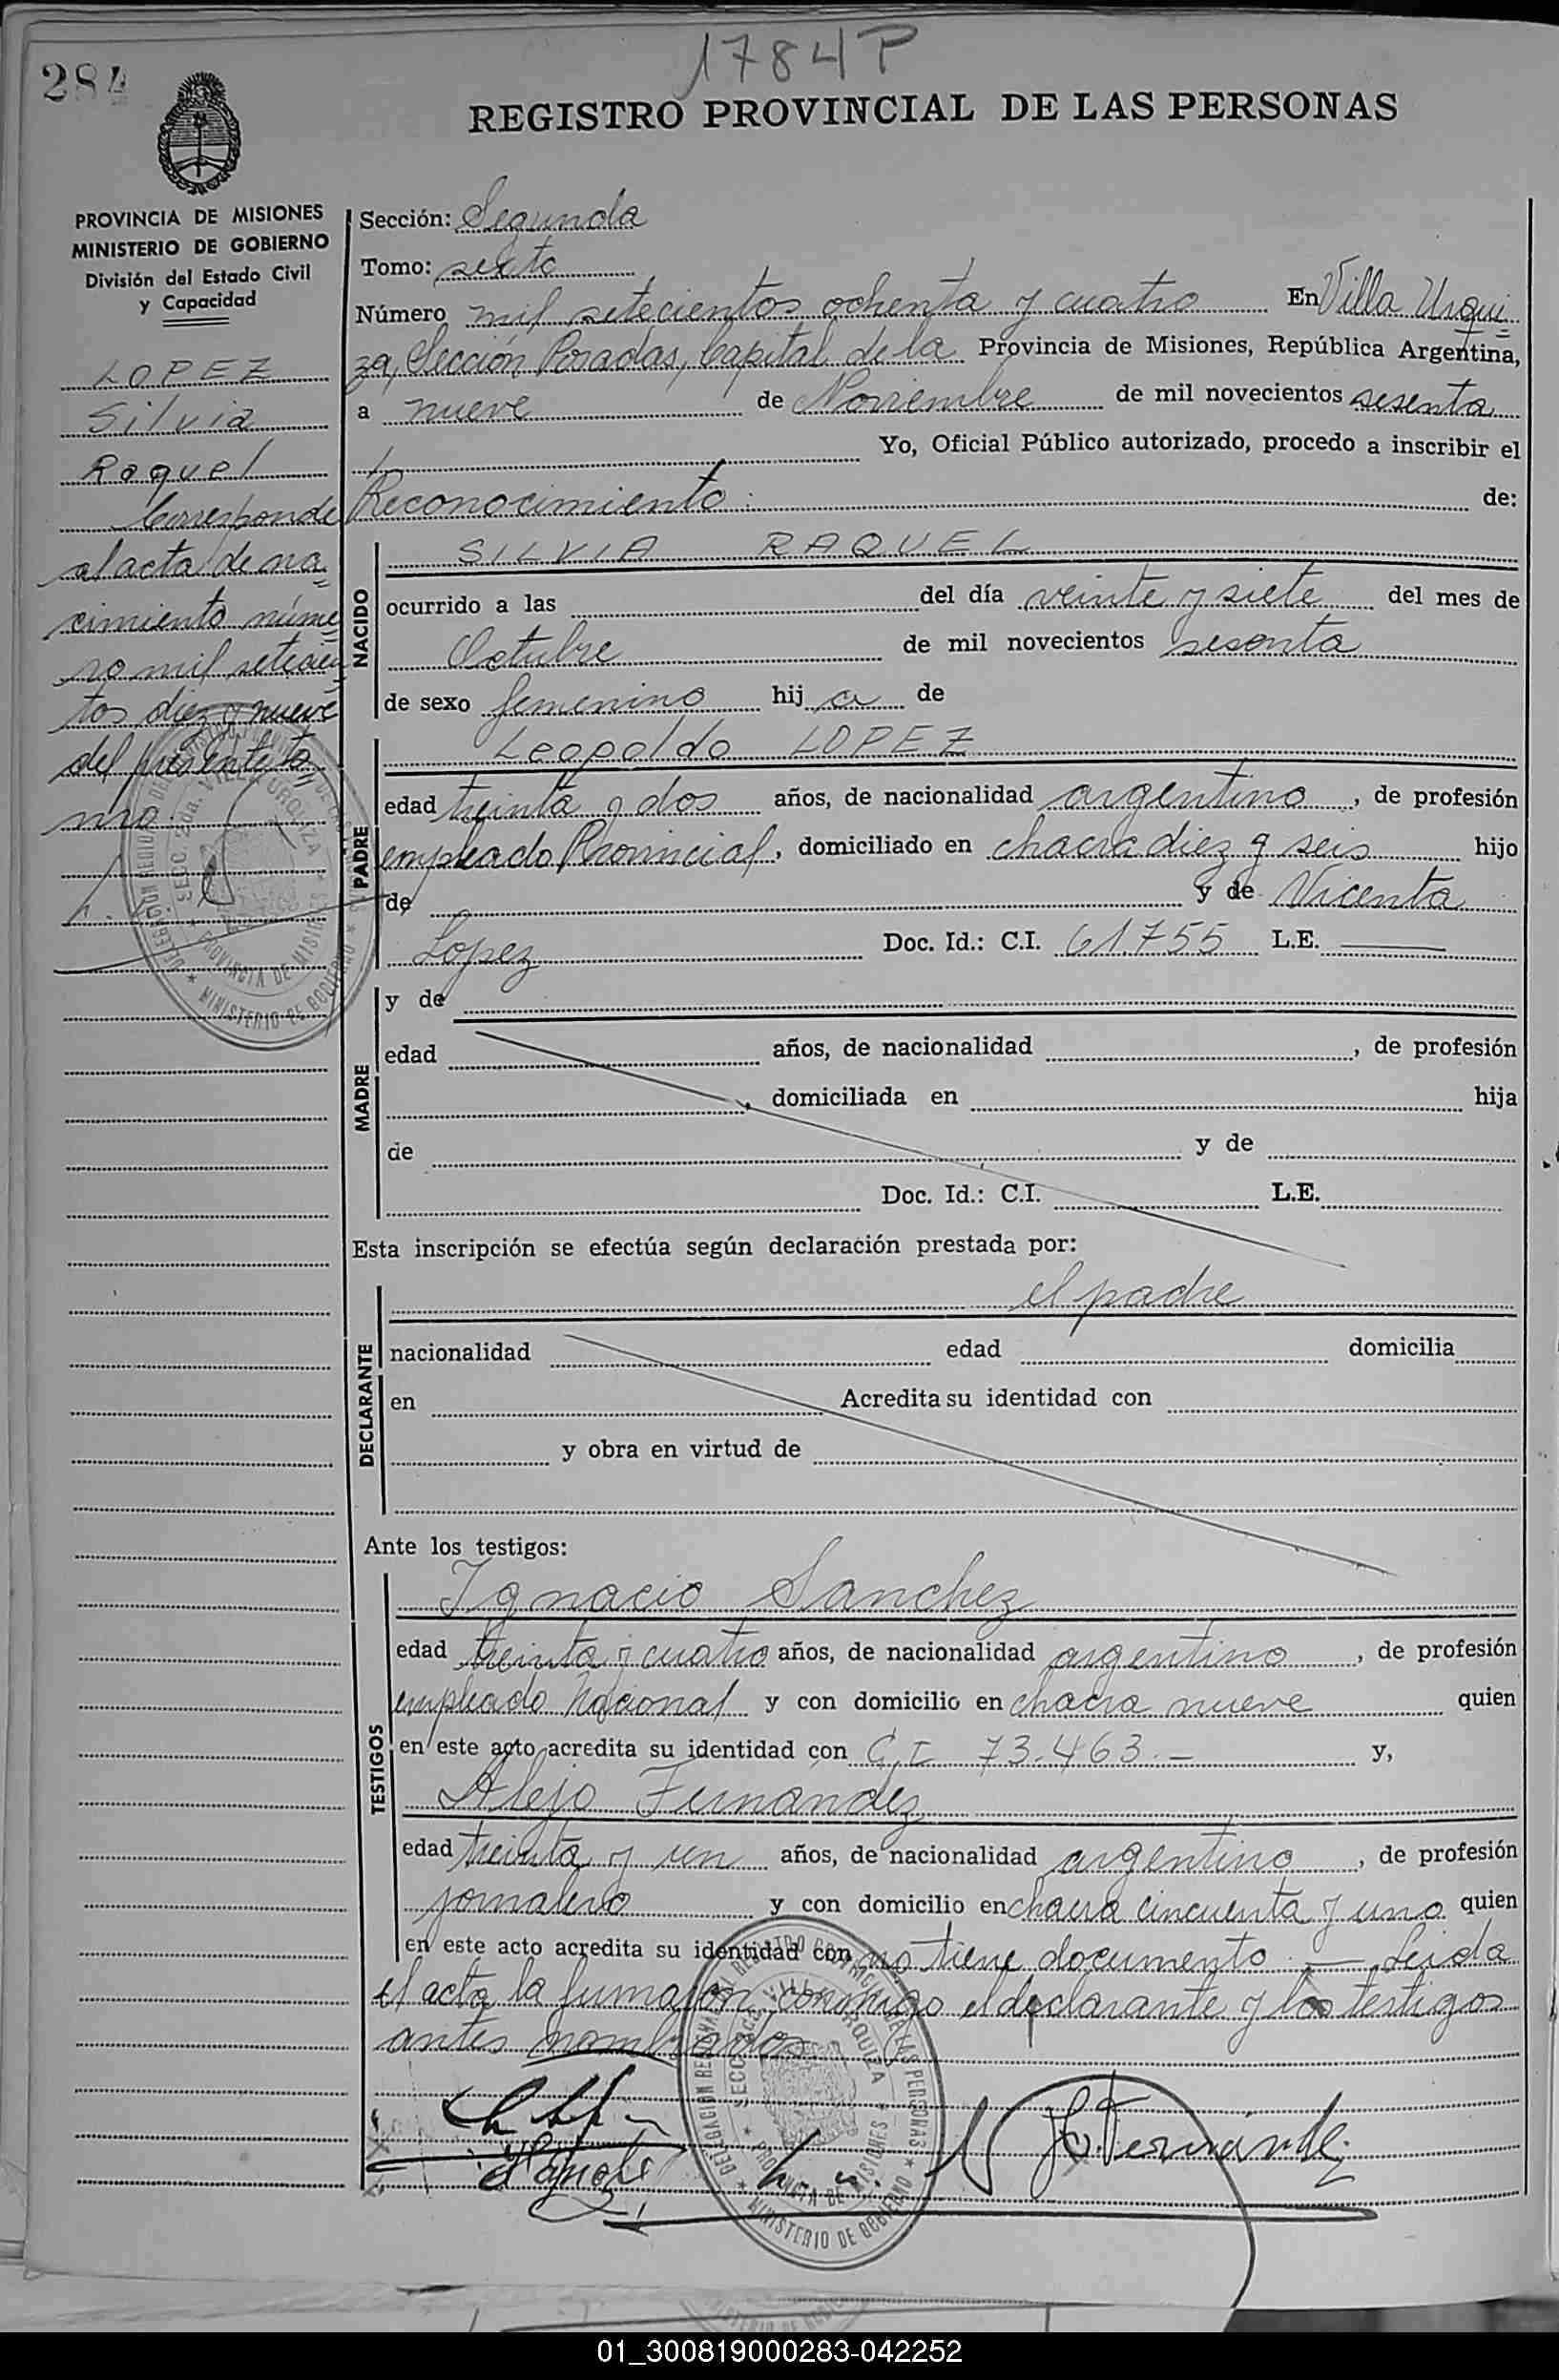 1784 P
284
REGISTRO PROVINCIAL DE LAS PERSONAS
PROVINCIA DE MISIONES
MINISTERIO DE GOBIERNO
División del Estado Civil
y Capacidad
LOPEZ
Silvia
Raquel
Corresponde
al acta de na=
cimiento núme
ro mil setecien
tos diez y nueve
del presente to
mo.
Sección: Segunda
Tomo: sexto
Número mil setecientos ochenta y cuatro En Villa Urqui=
za, Sección Posadas, Capital de la Provincia de Misiones, República Argentina,
a nueve de Noviembre de mil novecientos sesenta
Yo, Oficial Público autorizado, procedo a inscribir el
Reconocimiento: de:
NACIDO
SILVIA RAQUEL
ocurrido a las del día veinte y siete del mes de
Octubre de mil novecientos sesenta
de sexo femenino hij a de
PADRE
Leopoldo LOPEZ
edad treinta y dos años, de nacionalidad argentino, de profesión
empleado Provincial, domiciliado en chacra diez y seis hijo
de y de Vicenta
Lopez Doc. Id.: C.I. 61.755 L.E.
MADRE
y de
edad años, de nacionalidad , de profesión
, domiciliada en hija
de y de
Doc. Id.: C.I. L.E.
Esta inscripción se efectúa según declaración prestada por:
DECLARANTE
el padre
nacionalidad edad domicilia
en Acredita su identidad con
y obra en virtud de
Ante los testigos:
TESTIGOS
Ignacio Sanchez
edad treinta y cuatro años, de nacionalidad argentino, de profesión
empleado Nacional y con domicilio en chacra nueve quien
en este acto acredita su identidad con C.I 73.463.- y,
Alejo Fernandez
edad treinta y un años, de nacionalidad argentino, de profesión
jornalero y con domicilio en chacra cincuenta y uno quien
en este acto acredita su identidad con no tiene documento — Leida
el acta la firmaron conmigo el declarante y los testigos
antes nombrados
Fernández
01_300819000283-042252